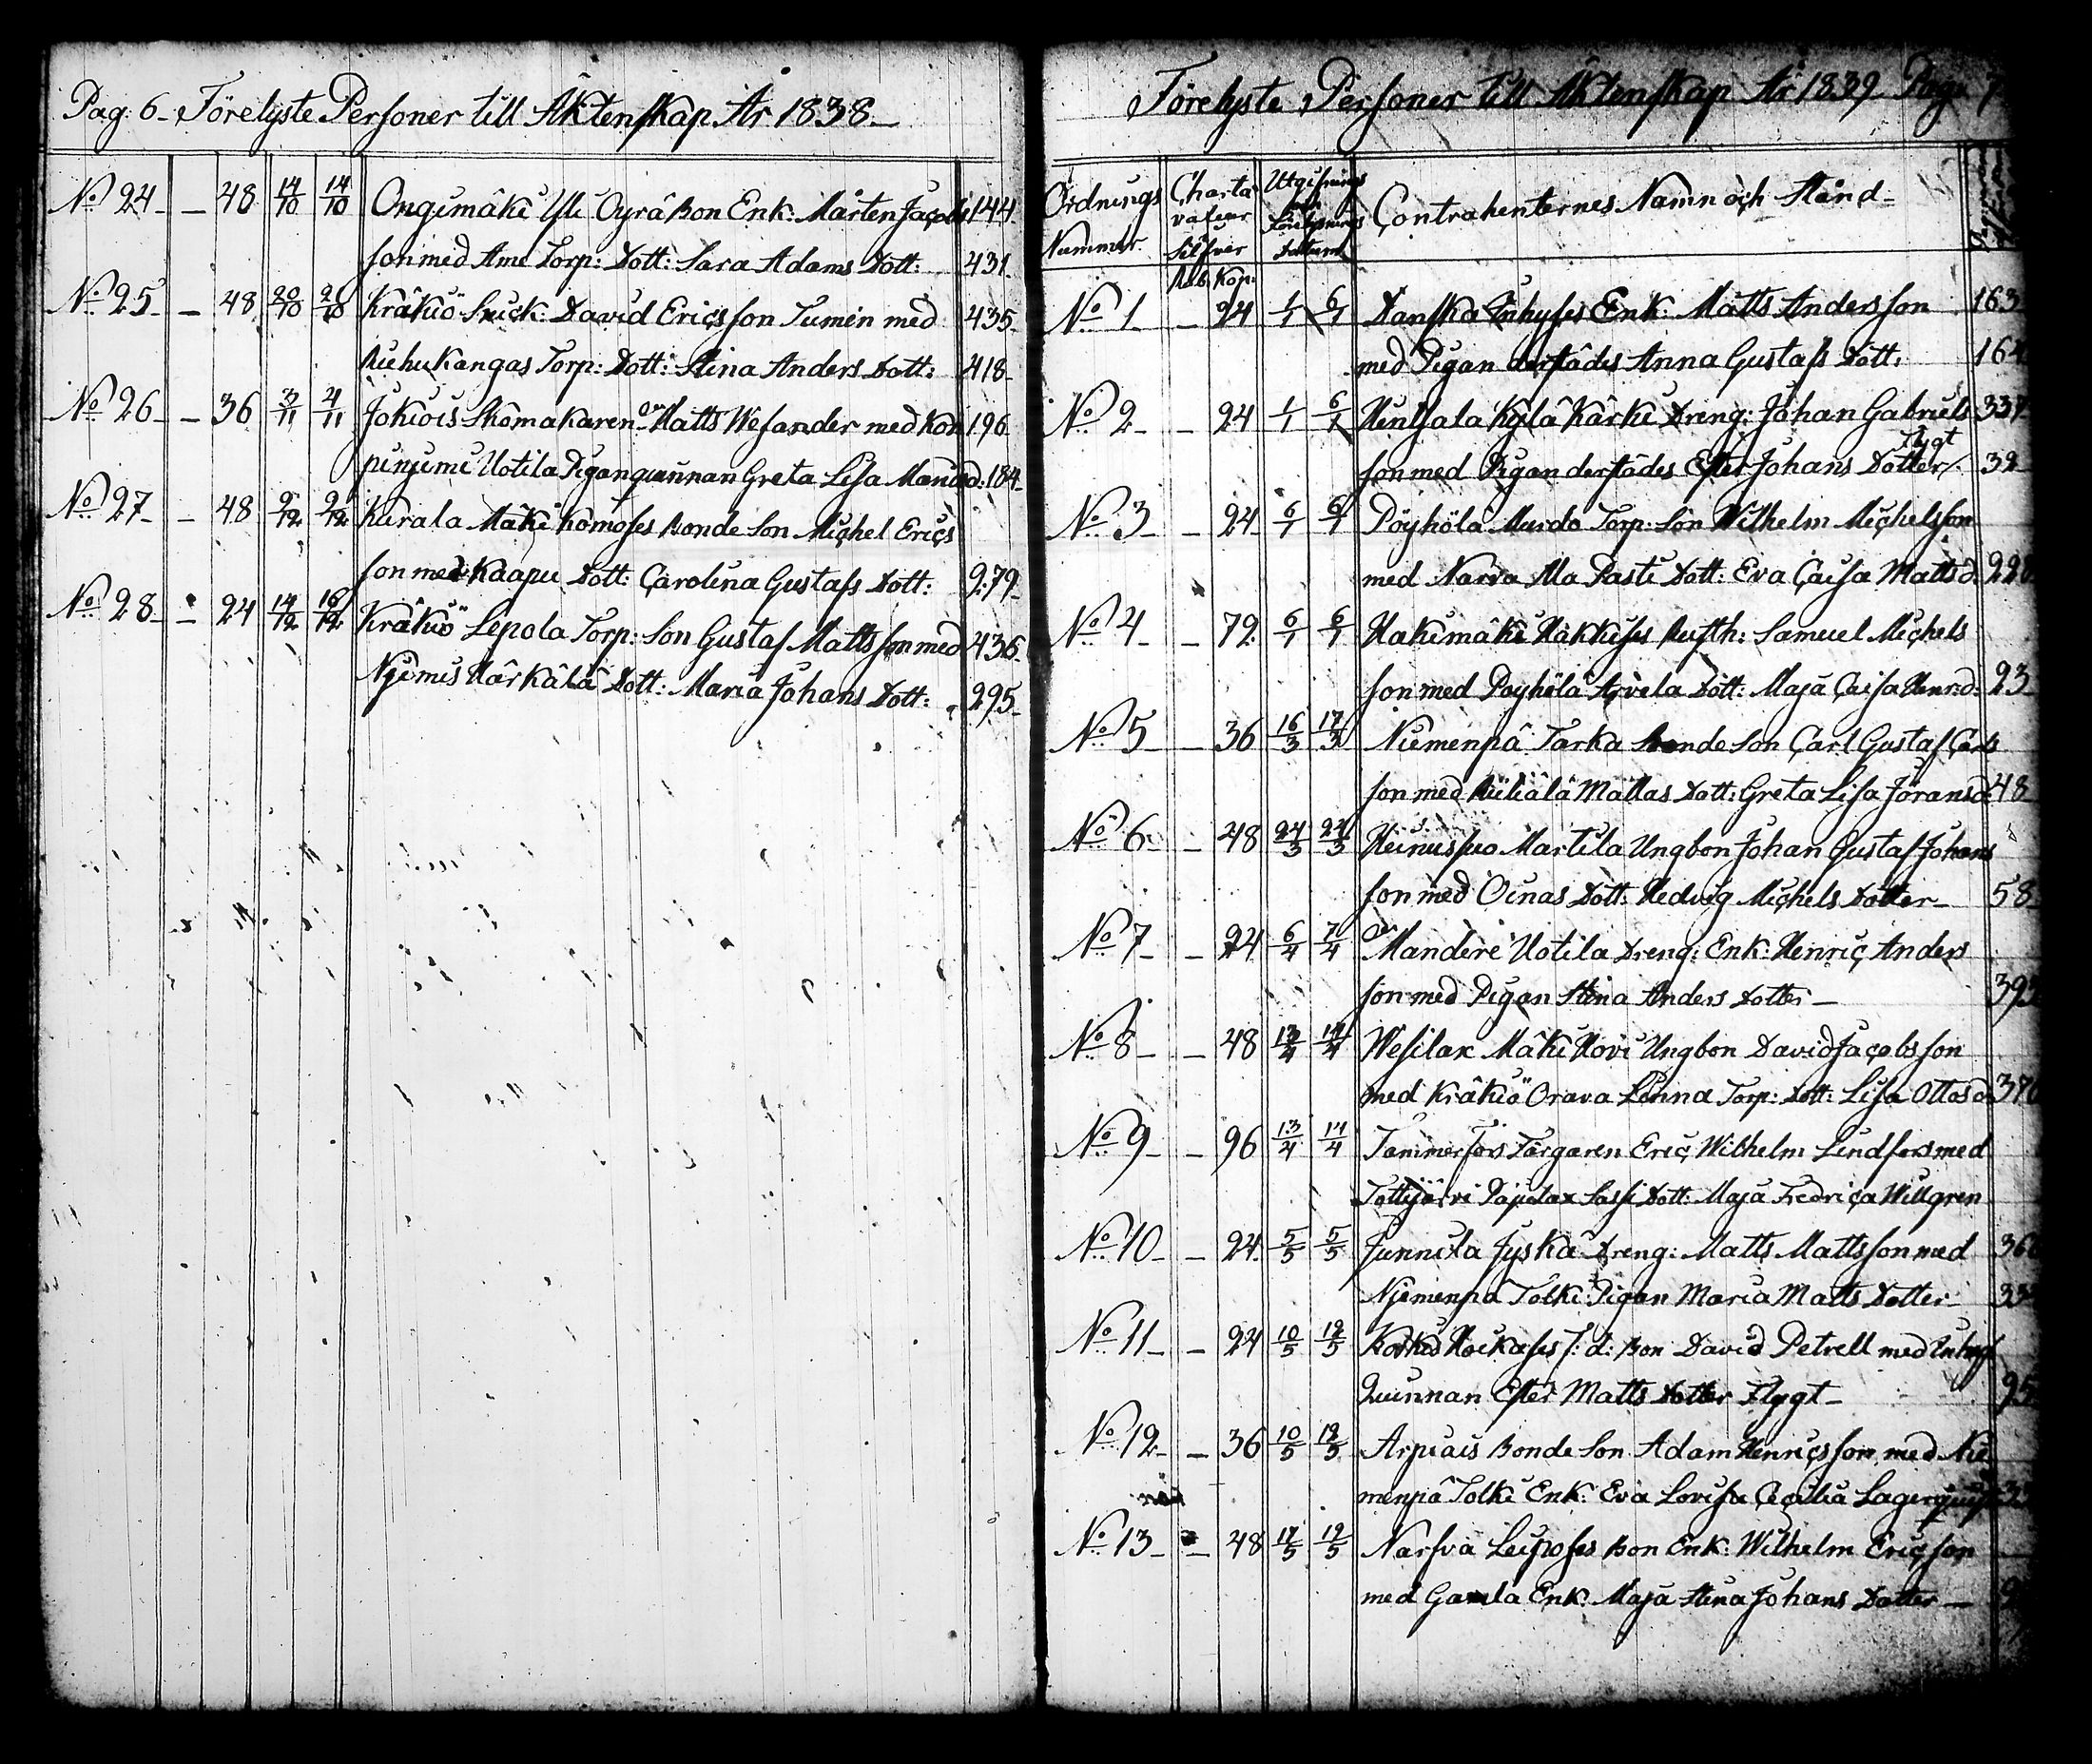 Pag: 6_ Förelyste Personer till Äktenskap År 1838_
No 24_ _ 48 14/10 14/10 Ongemäki Yli Äyrä Bon Enk: Mårten Jacobs 144.
son med Ame Torp: Dott: Sara Adams Dott: 431.
No 25_ _ 48 20/10 21/10 Kräkiö David Ericsson Tumen med 435.
Riehukangas Torp: Dott: Stina Anders Dott: 418_
No 26_ _ 36 3/11 4/11 Jokiois Skomakaren Matts Wesander med Kon 196
penjemi Uotila Piganquinnan Greta Lisa Mand: 184_
No 27_ _ 48 2/12 2/12 Kurala Mäki Komoses Bonde Son Michel Erics
son med Kaapu Dott: Carolina Gustafs Dott: 279_
No 28_ _ 24 14/12 16/12 Kräkiö Lepola Torp: Son Gustaf Mattsson med 436_
Njemis Härkälä Dott: Maria Johans Dott: 295_
Förelyste Personer till Äktenskap År 1839 Pag: 7
Ordnings Nummer Charta valeur Silfver Rub. Kop: Utgifnings och Förelysnings Datum Contrahenternes Namn och Stånd_
No 1_ _ 24 1/1 6/1 Danska Inhyses Enk: Matts Andersson 163
med Pigan derstädes Anna Gustafs Dott: 164
No 2_ _ 24 1/1 6/1 Hentsala Kylä Kärki Dreng: Johan Gabriels 337
son med Pigan derstädes Ester Johans Dotter Flygt /. 32
No 3_ _ 24 6/1 6/1 Pöyhölä Murdo Torp: Son Wilhelm Michelsson
med Narva Ala Pasti Dott: Eva Caisa Matts d. 220
No 4_ _ 72 6/1 6/1 Hakimäki Häkkises Rusth: Samuel Michels
son med Poyhölä Arvela Dott: Maja Caisa Henr:d: 23_
No 5_ _ 36 16/3 17/3 Niemenpä Tarka Bonde Son Carl Gustaf Carls
son med Riliälä Mattas Dott: Greta Lisa Jörans d: 48_
No 6_ _ 48 24/3 24/3 Heinusuo Martila Ungbon Johan Gustaf Johans
son med Oinas Dott: Hedvig Michels Dotter_ 58_
No 7_ _ 24 6/4 7/4 Manderé Uotila Dreng: Enk: Henric Anders
son med Pigan Stina Anders Dotter_ 393
No 8_ _ 48 13/4 14/4 Wesilax Mäki Hovi Ungbon David Jacobsson
med Kräkiö Orava Lenna Torp: Dott: Lisa Ottos d: 370
No 9_ _ 96 13/4 14/4 Tammerfors Färgaren Eric Wilhelm Lindfors med
Tottijärvi Pajulax Sassi Dott: Maja Fredrica Willgren
No 10_ _ 24 5/5 5/5 Junnila Jyskä Dreng: Matts Mattsson med 360
Njemenpä Tolki Pigan Maria Matts Dotter_ 33
No 11_ _ 24 10/5 12/5 f: d: Bon David Petrell med Inhys
Quinnan Ester Matts Dotter Flygt_ 95
No 12_ _ 36 10/5 12/5 Arpiais Bonde Son Adam Henricsson med Nie
menpä Tolki Enk: Eva Lovisa Cecilia Lagerquist
No 13_ _ 48 17/5 19/5 Narfva Leiposes Bon Enk: Wilhelm Ericsson
med Gamla Enk: Maja Stina Johans Dotter_